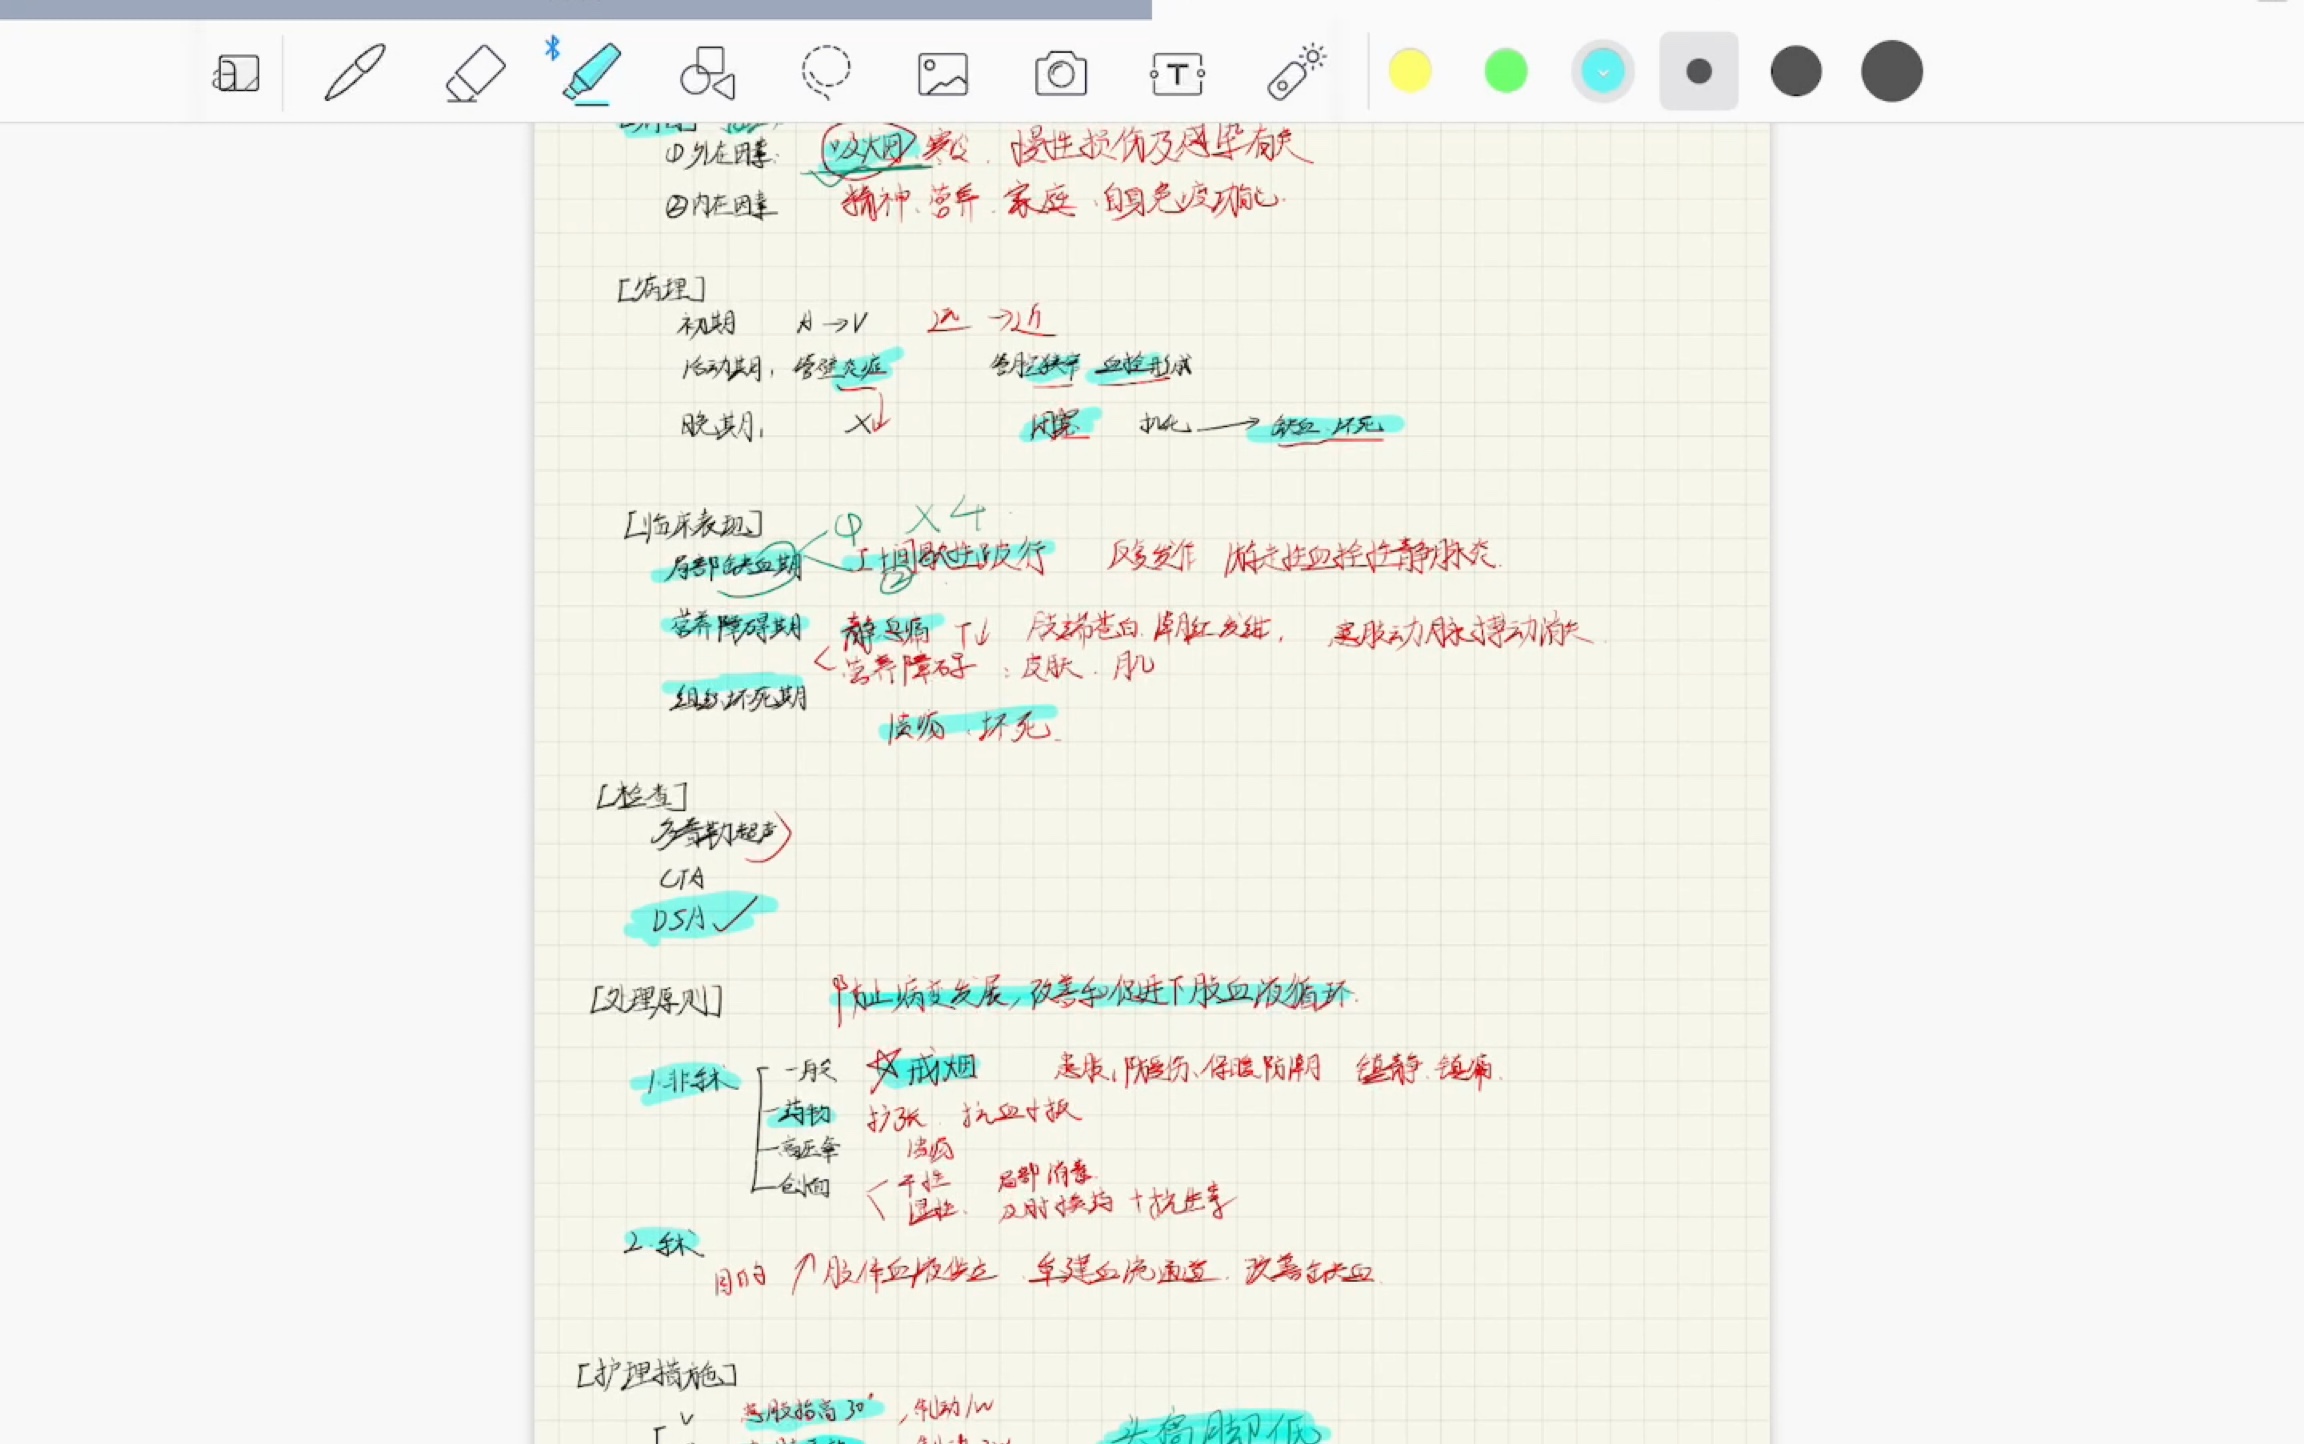 ①外在因素: 吸烟、寒冷、慢性损伤及感染有关
②内在因素 精神、营养、家庭、自身免疫功能.
[病理]
初期 A→V 远→近
活动期, 管壁炎症 管腔狭窄 血栓形成
晚期, X↓ 闭塞 机化→缺血.坏死
[临床表现] ① ×4
局部缺血期 ② 间歇性跛行 反复发作 游走性血栓性静脉炎.
营养障碍期 静息痛 T↓ 肢端苍白.潮红.发绀, 患肢动脉搏动消失
<营养障碍: 皮肤.肌
组织坏死期
溃疡、坏死
[检查]
多普勒超声
CTA
DSA✓
[处理原则] 防止病变发展,改善和促进下肢血液循环.
1.非手术 一般 ☆戒烟 患肢,防受伤、保暖防潮 镇静.镇痛.
药物 扩张. 抗血小板
高压氧 溃疡
创面 <干性 局部消毒
湿性. 及时换药+抗生素
2.手术
目的 ↑肢体血液供应 重建血流通道. 改善缺血
[护理措施]
V 患肢抬高30°,制动/W
头高脚低